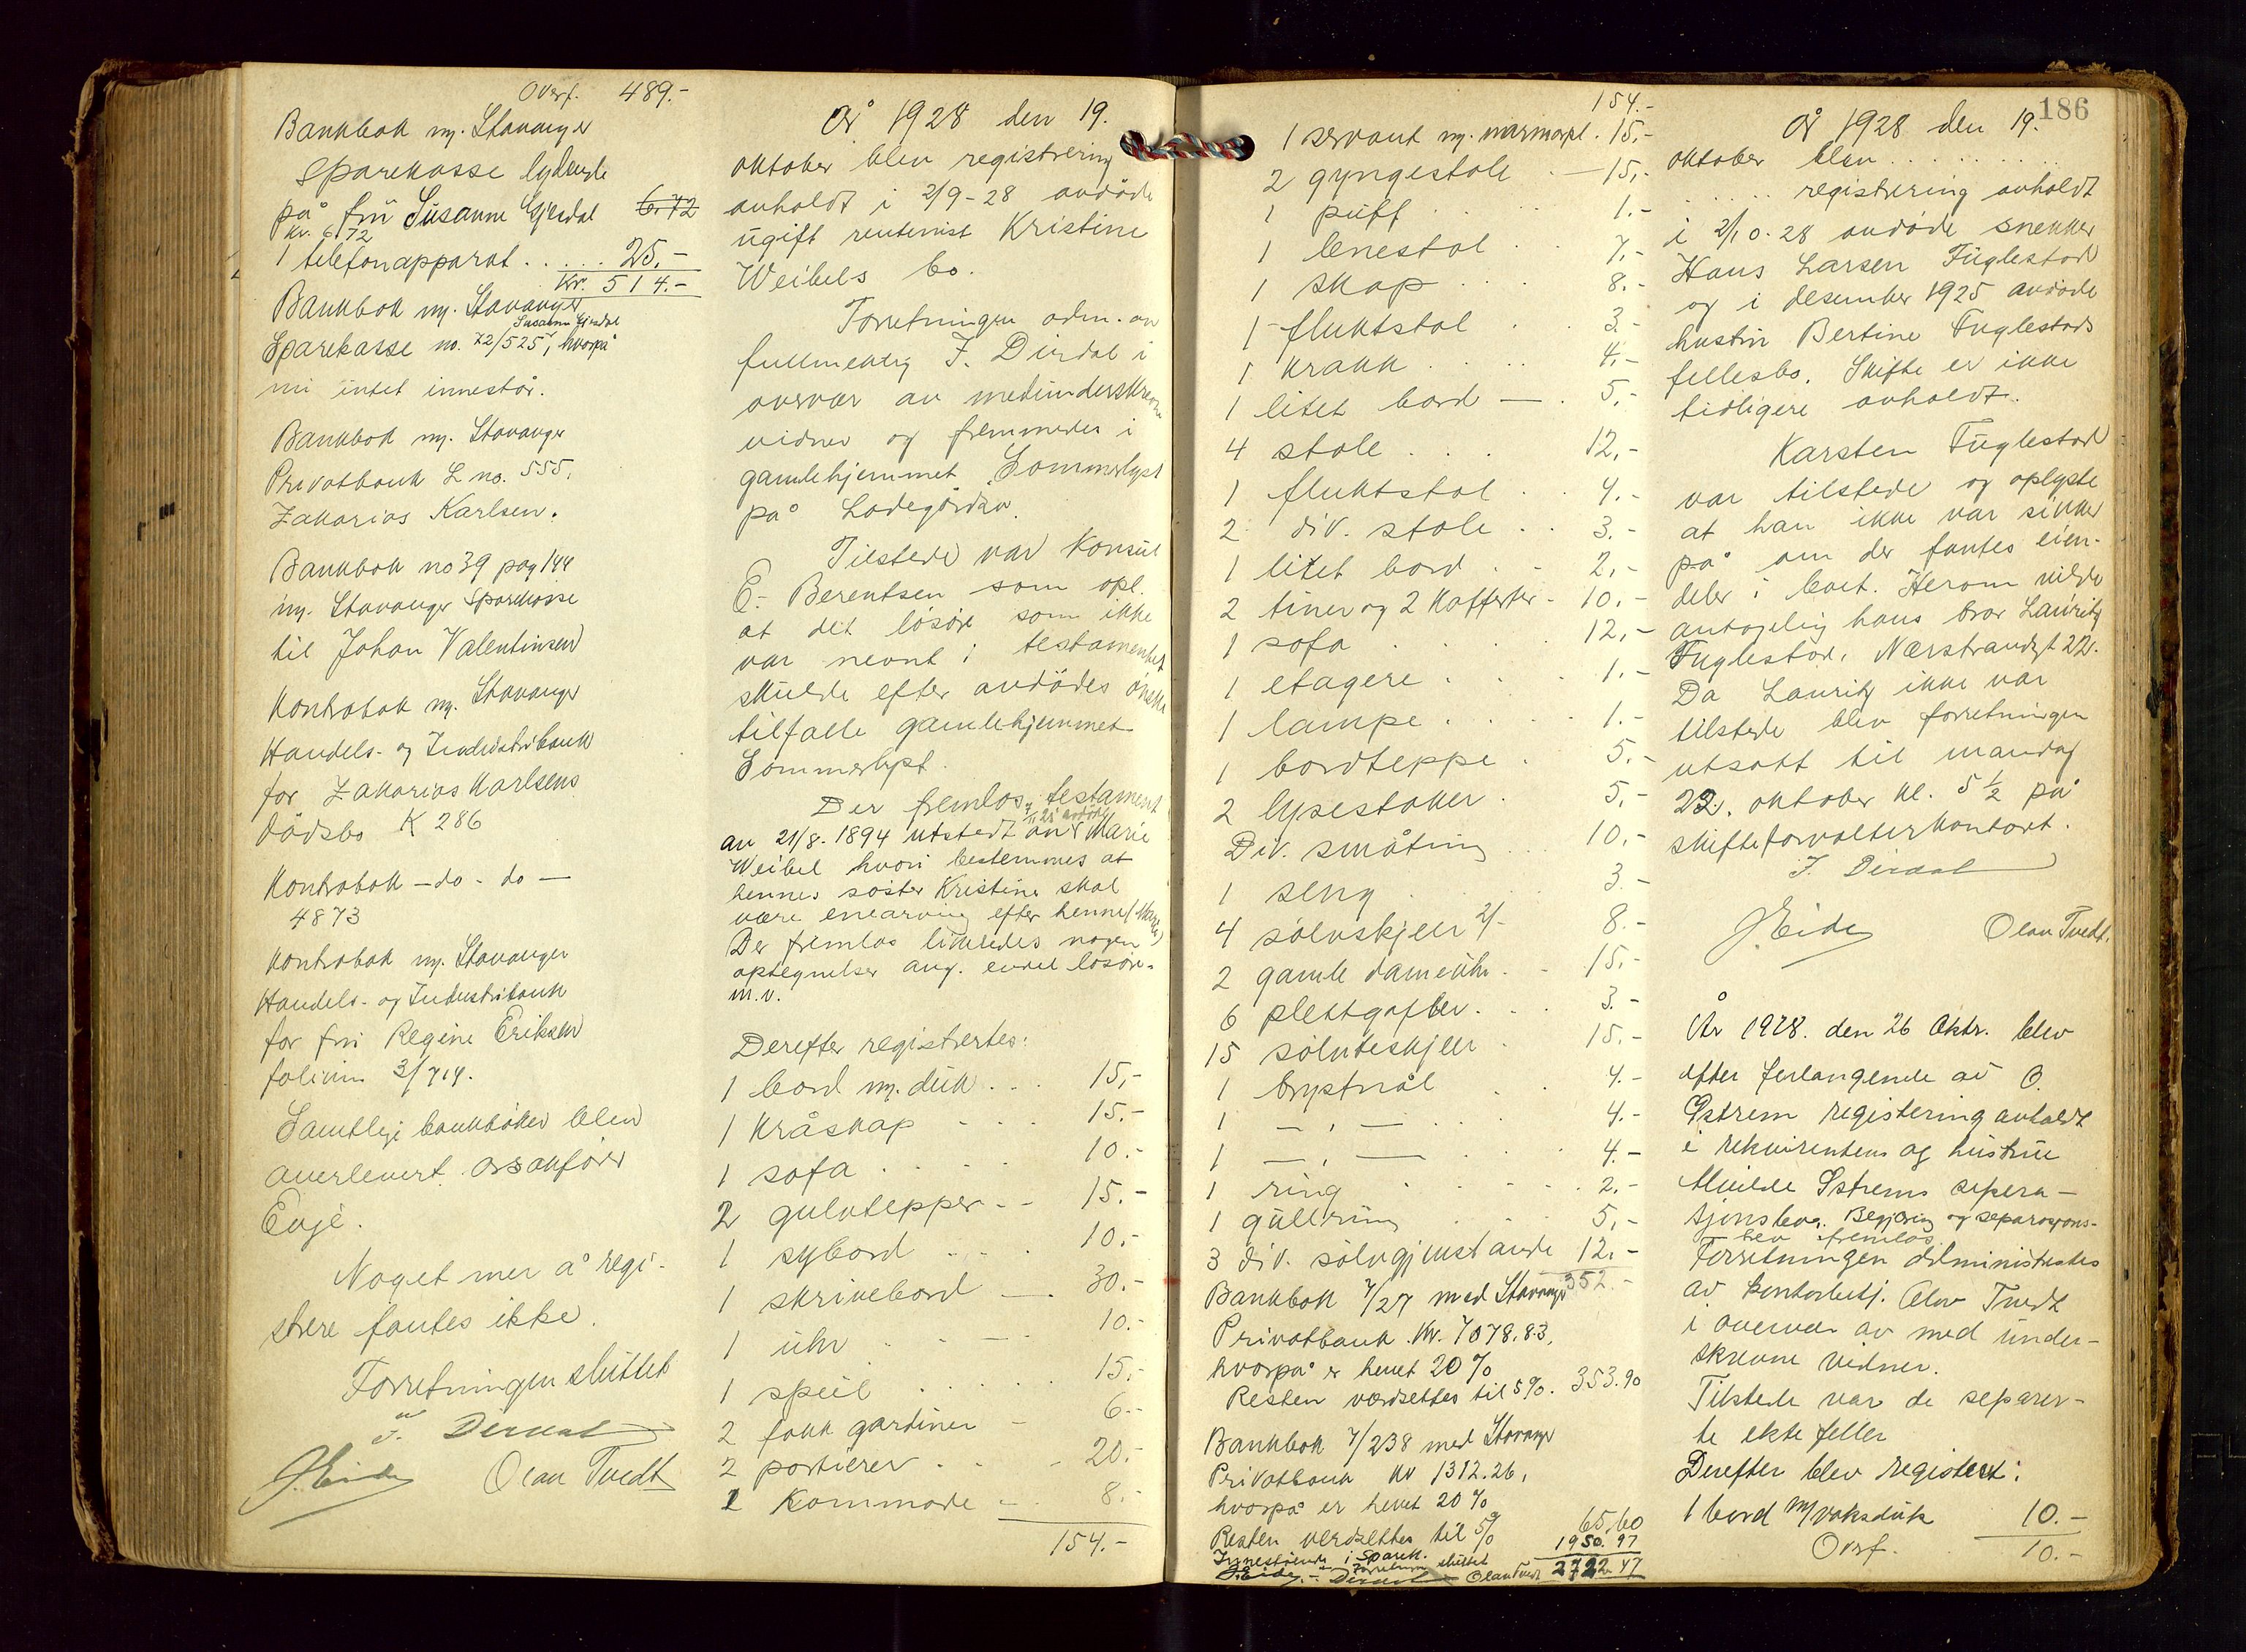 Overf. 489.-
Bankbok m. Stavanger
Sparekasse lydende
på frü Susanne Gjesdal 6.72
Kr. 6.72
1 telefonapparat . . . . . 25.-
Kr. 514.-
Bankbok m. Stavanger
Susanne Gjesdal
Sparekasse no. 72/525, hvorpå
nü intet innestår.
Bankbok m. Stavanger
Privatbank L no. 555.
Zakarias Karlsen.
Bankbok no 39 pag 144
m. Stavanger Sparekasse
til Johan Valentinsen
Kontrabok m. Stavanger
Handels- og Industribank
for Zakarias Karlsens
dödsbo K 286
Kontrabok - do - do -
4873
Kontrabok m. Stavanger
Handels- og Industribank
for frü Regine Eriksen
folium 3/714.
Samtlige bankböker blev
overlevert
Evje.
Noget mer å regi-
strere fantes ikke.
Forretningen slüttet
J. Dirdal
J. Eide Olav Tvedt
År 1928 den 19.
oktober blev registrering
avholdt i 2/9-28 avdöde
ugift rentenist Kristine
Weibels bo.
Forretningen adm. av
fullmektig J. Dirdal i
overvær av medünderskrevne
vidner og fremmedes i
gamlehjemmet Sommerlyst
på Ladegården.
Tilstede var Konsül
E. Berentsen som opl.
at det lösöre som ikke
var nevnt i testamentet
skülde efter avdödes önske
tilfalle gamlehjemmet
Sommerlyst.
Der fremlas testament
av 21/8. 1894 utstedt av Marie
Weibel hvori bestemmes at
hennes söster Kristine skal
være enearving efter henne (Marie)
Der fremlas likeledes nogen
optegnelser ang. endel lösöre
m.v.
Derefter registrertes:
1 bord m. dük . . . 15,-
1 kråskap . . . . 15.-
1 sofa . . . . . 10.-
2 gulvtepper . . 15.-
1 sybord . . . . 10.-
1 skrivebord . 30.-
1 ühr . . . . 10.-
1 speil . . . . . 15,-
2 fakk gardiner - 6.-
2 portierer . . . 20.-
1 kommode . . 8.-
154.-
154.-
1 servant m. marmorpl. 15,-
2 gyngestole . 15,-
1 püff . . . . . 1.-
1 lenestol . . . 7.-
1 skap . . . . 8.-
1 fluktstol . . 3.-
1 krakk . . . . 4.-
1 litet bord - . 5.-
4 stole . . . 12,-
1 fluktstol . . 4.-
2 div. stole . . 3.-
1 litet bord . . 2,-
2 tiner og 2 kofferter - 10.-
1 sofa . . . . . 12,-
1 etagere . . . . 1.-
1 lampe . . . . . 1.-
1 bordteppe . 5.-
2 lysestaker . 5,-
Div. småting . . . 10,-
1 seng . . . . 3.-
4 sölvskjeer 2/- 8.-
2 gamle dameühr . . 15,-
6 plettgafler . . . 3.-
15 sölvteskjeer . 15.-
1 brystnål . . 4.-
1 - , - . . . 4.-
1 - , - . . . 4.-
1 ring . . . . . 2,-
1 güllring . . . 5,-
3 div. sölvgjenstande 12.-
352.-
Bankbok 7/27 med Stavanger
Privatbank. Kr. 7078.83,
hvorpå er hevet 20 %
Resten værdsettes til 5 %. 353.90
Bankbok 7/238 med Stavanger
Privatbank Kr 1312.26,
hvorpå er hevet 20 %
Resten verdsettes til 5 % 65.60
Innestående i Sparek. 1950.97
Forretningen slüttet 2722.47
J. Eide. Dirdal Olav Tvedt
186
År 1928 den 19.
oktober blev . . . . . . . . .
. . . . . . registrering avholdt
i 2/10-28 avdöde snekker
Hans Larsen Füglestad
og i desember 1925 avdöde
hüstrü Bertine Fuglestads
fellesbo. Skifte er ikke
tidligere avholdt.
Karsten Füglestad
var tilstede og oplyste
at han ikke var sikker
på om der fantes eien-
deler i boet. Herom vilde
antagelig hans bror Lauritz
Fuglestad, Nærstrandgt 22.
Da Lauritz ikke var
tilstede blev forretningen
utsatt til mandag
22. oktober kl. 5 1/2 på
skifteforvalterkontoret.
J. Dirdal
J. Eide Olav Tvedt.
År 1928. den 26 Oktr. blev
efter forlangende av O.
Østrem registering avholdt
i rekvirentens og hüstrü
Østrems sepera-
sjonsbo. Begjæring og separasjons-
blev fremlas.
Forretningen administrertes
av kontorbetj. Olav Tvedt
i overvær av med ünder-
skrevne vidner.
Tilstede var de separer-
te ektefeller
Derefter blev registert:
1 bord m/voksdük 10.-
Overf. 10.-